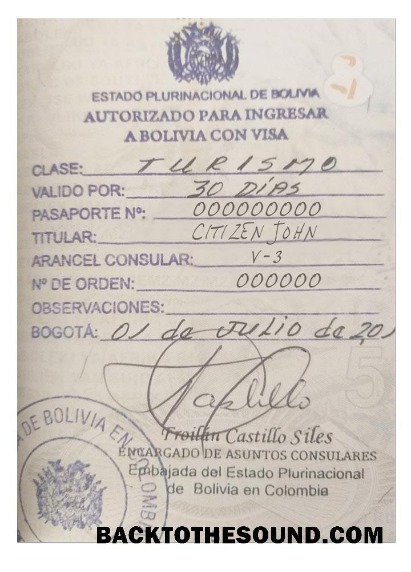 ESTADO PLURINACIONAL DE BOLIVIA
AUTORIZADO PARA INGRESAR
A BOLIVIA CON VISA
CLASE: TURISMO
VALIDO POR: 30 DÍAS
PASAPORTE Nº: 000000000
TITULAR: CITIZEN JOHN
ARANCEL CONSULAR: V-3
Nº DE ORDEN: 000000
OBSERVACIONES:
BOGOTÁ: 01 de JULIO de 201
Castillo
Troilán Castillo Siles
ENCARGADO DE ASUNTOS CONSULARES
Embajada del Estado Plurinacional
de Bolivia en Colombia
DE BOLIVIA EN COLOMBIA
BACKTOTHESOUND.COM